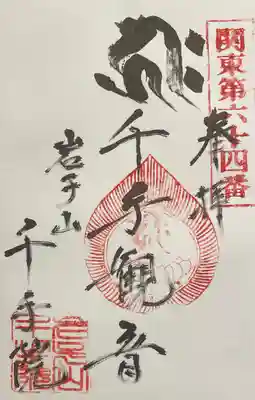 関東第六十四番
奉拝
千手觀音
岩子山
千手院